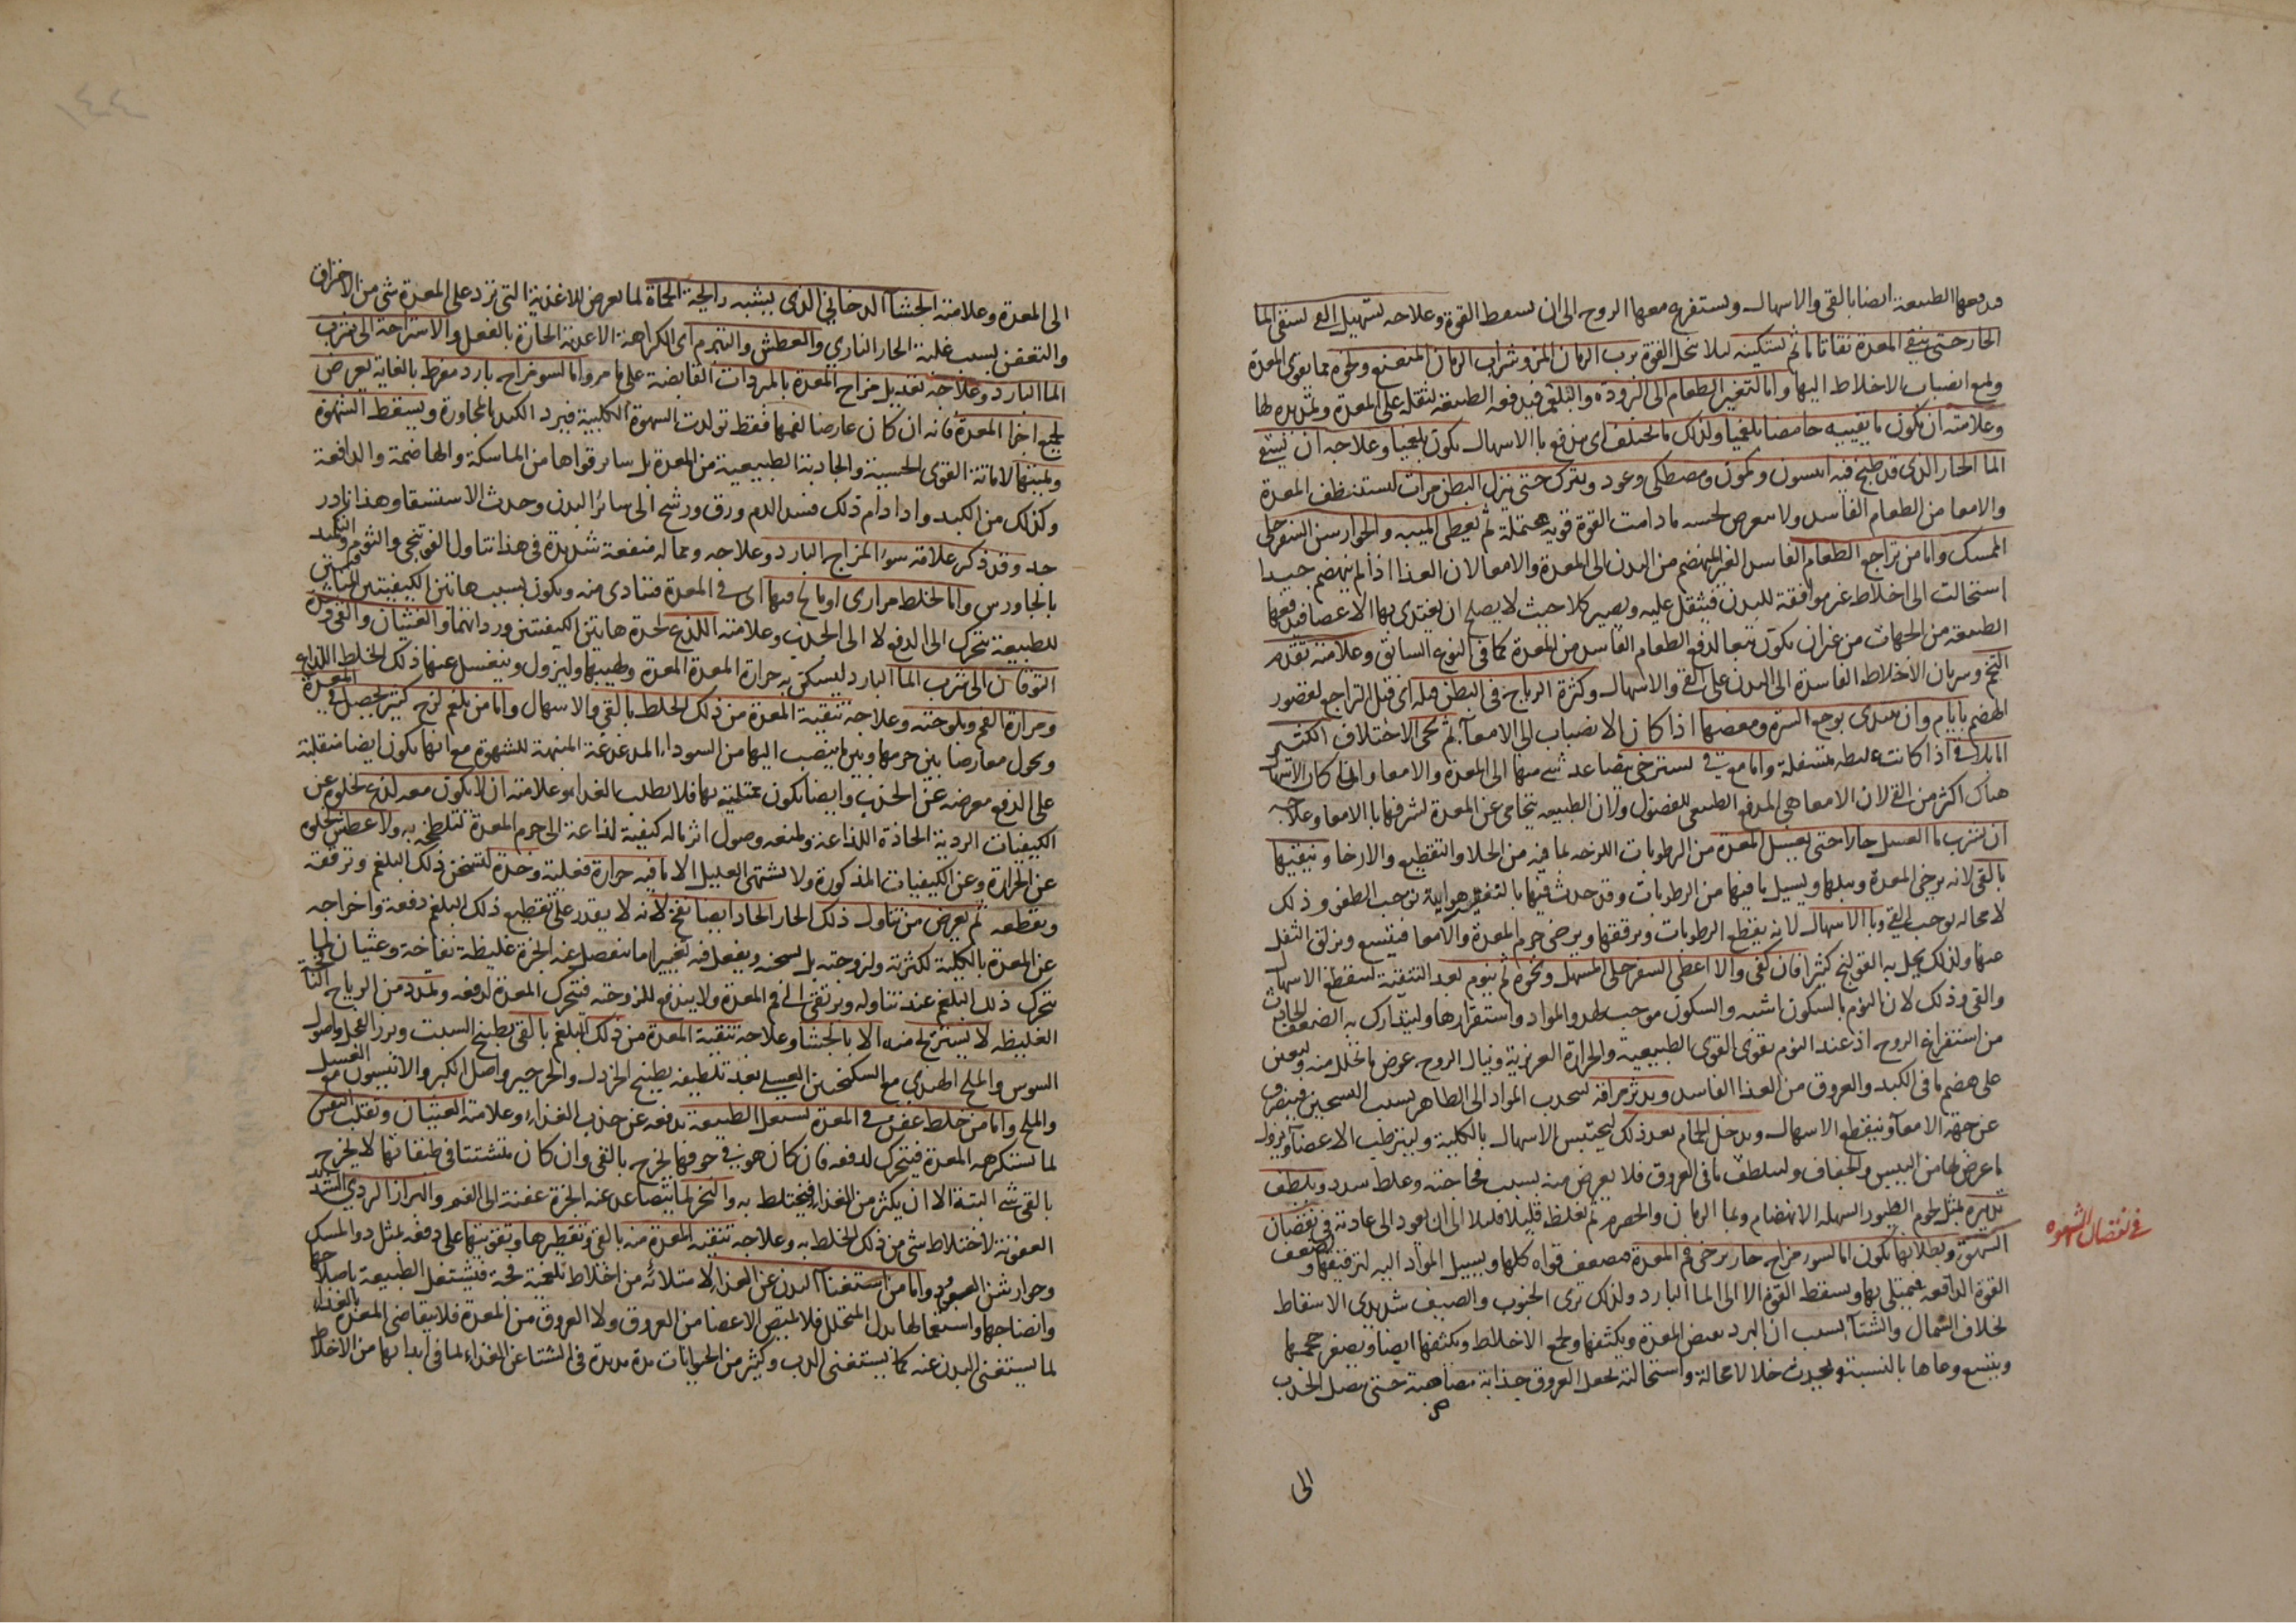 فدفعها الطبيعة ايضا بالقى والاسهال ويستفرغ معها الروح الى ان يسقط القوة وعلاجه تسهيل القى بسقى الما
الحار حتى ينقى المعدة نقا تاما ثم تسكينه ليلا تنحل القوة برب الرمان المز وشراب الرمان المنعنع ونحوه مما يقوى المعدة
ويمنع انصباب الاخلاط اليها واما لتغير الطعام الى البرودة والبلغم فيدفعه الطبيعة لثقله على المعدة وتمديده لها
وعلامته ان يكون ما يقيئه حامضا بلغميا ولذلك ما يختلف اى يندفع بالاسهال يكون بلغميا وعلاجه ان يسقى
الما الحار الذى قد طبخ فيه انيسون وكمون ومصطكى وعود ويترك حتى ينزل البطن مرات ليستنظف المعدة
والامعا من الطعام الفاسد ولا يتعرض لحبسه ما دامت القوة قوية محتملة ثم يعطى الميبه والجوارشن السفرجلى
الممسك واما من تراجع الطعام الفاسد الغير المنهضم من البدن الى المعدة والامعا لان الغذا اذا لم ينهضم جيدا
استحالت الى اخلاط غير موافقة للبدن فيثقل عليه ويصير كلا حيث لا يصلح ان يغتدى بها الاعضا فيدفعها
الطبيعة من الجهات من غير ان يكون تبعا لدفع الطعام الفاسد من المعدة كما فى النوع السابق وعلامته تقدم
التخم وسريان الاخلاط الفاسدة الى البدن على القى والاسهال وكثرة الرياح فى البطن قبله اى قبل التراجع لقصور
الهضم بايام وان يبتدى بوجع السرة ومغصها اذا كان الانصباب الى الامعا ثم يجى الاختلاف الكثير
اذا كانت غليظة متسفلة واما موتى لسترخى يتصاعد شى منها الى المعدة والامعا وانما كان الاسهال
هناك اكثر من القى لان الامعا هى المدفع الطبيعى للفضول ولان الطبيعة يتحامى عن المعدة لشرفها بالامعا وعلاجه
ان يشرب ما العسل حارا حتى يغسل المعدة من الرطوبات اللزجة لما فيه من الجلا والتقطيع والارخا وينقيها
بالقى لانه يرخى المعدة ويبلها ويسيل ما فيها من الرطوبات وقد حدث فيها بالتغير هوايية توجب الطفو وذلك
لا محاله يوجب القى وبالاسهال لانه يقطع الرطوبات ويرققها ويرخى جرم المعدة والامعا فيتسع ويزلق الثفل
عنها ولذلك يحل به القولنج كثيرا فان كفى والا اعطى السفرجلى المسهل ونحوه ثم ينوم بعد التنقية ليقطع الاسهال
والقى وذلك لان النوم بالسكون اشبه والسكون موجب لهدو المواد واستقرارها وليتدارك به الضعف الحادث
من استفراغ الروح اذ عند النوم يقوى القوى الطبيعية والحرارة الغريزية وينال الروح عوض ما تحلل منه ويعين
على هضم ما فى الكبد والعروق من الغذا الفاسد ويدثر مراقه لتنجذب المواد الى الظاهر بسبب التسخين فينصرف
عن جهة الامعا وينقطع الاسهال ويدخل الحمام بعد ذلك ليحتبس الاسهال بالكلية وليترطب الاعضا ويزول
ما عرض لها من اليبس والجفاف وليلطف ما فى العروق فلا يعرض منه بسبب فجاجته وغلظ سدد ويلطف
تدبيره بمثل لحوم الطيور السهلة الانهضام وبما الرمان والحصرم ثم تغلظ قليلا قليلا الى ان يعود الى عادته فى نقصان
الشهوة وبطلانها يكون اما لسوء مزاج حار يرخى فم المعدة فيضعف قواه كلها ويسيل المواد اليه لترقيقها وضعف
القوة الدافعة فيمتلى بها ويسقط القوة الا الى الما البارد ولذلك ترى الجنوب والصيف شديدى الاسقاط
بخلاف الشمال والشتا بسبب ان البرد يقبض المعدة ويكثفها ويجمع الاخلاط ويكثفها ايضا ويصغر حجمها
ويتسع وعاها بالنسبة ويحدث خلا لا محالة واستحالته يجعل العروق جذابة مصاصة حتى يصل الجذب
فى نقصان الشهوه
الى
١٤٤
الى المعدة وعلامته الجشا الدخانى الذى يشبه رايحة الحماة لما يعرض للاغذية التى ترد على المعدة شى من الاحتراق
والتعفن بسبب غلبة الحار النارى والعطش والتبرم اى الكراهة الاغذية الحارة بالفعل والاستراحة الى شرب
الما البارد وعلاجه تعديل مزاج المعدة بالمبردات القابضة على ما مر واما لسو مزاج بارد مفرط بالغاية يعرض
لجميع اجزا المعدة فانه ان كان عارضا لفمها فقط تولدت الشهوة الكلبية فيبرد الكبد بالمجاورة ويسقط الشهوة
ويميتها لاماتة القوى الحسية والجاذبة الطبيعية من المعدة بل ساير قواها من الماسكة والهاضمة والدافعة
وكذلك من الكبد واذا دام ذلك فسد الدم ورق ورشح الى سائر البدن وحدث الاستسقا وهذا نادر
جد وقد ذكر علامة سوء المزاج البارد وعلاجه ومما له منفعة شديدة فى هذا تناول الفوتنجى والثوم والتكميد
بالجاورس واما لخلط مرارى او مالح فيها اى فى المعدة فتتاذى منه ويكون بسبب هاتين الكيفيتين
للطبيعة يتحرك الى الدفع لا الى الجذب وعلامته اللذع لحدة هاتين الكيفيتين وردائهما والغثيان والقى و
التوقان الى شرب الما البارد ليسكن به حرارة المعدة المعدة ولهيبها وليزول وينغسل عنها ذلك الخلط اللذاع
ومرارة الفم وملوحته وعلاجه تنقية المعدة من ذلك الخلط بالقى والاسهال واما من بلغم لزج كثير يحصل فى المعدة
ويحول معارضا بين جرمها وبين ما ينصب اليها من السوداء المدغدغة المنبهة للشهوة مع انها يكون ايضا منقلبة
على الدفع معرضة عن الجذب وايضا يكون ممتلية بها فلا يطلب الغذاء وعلامته ان لا يكون معه لذع لخلوه عن
الكيفيات الردية الحادة اللذاعة ولمنعه وصول اثر ماله كيفية لذاعة الى جرم المعدة لتلطخه به ولا عطش لخلوه
عن الحرارة وعن الكيفيات المذكورة ولا يشتهى العليل الا ما فيه حرارة فعلية وحدة لتسخن ذلك البلغم وترققه
ويقطعه ثم يعرض من تناول ذلك الحار الحاد ايضا نفخ لانه لا يقدر على تقطيع ذلك البلغم دفعة واخراجه
عن المعدة بالكلية لكثرته ولزوجته بل يسخنه ويفعل فيه تغييرا ما ينفصل عنه ابخرة غليظة نفاخة وغثيان لما
يتحرك ذلك البلغم عند تناوله ويرتقى الى فم المعدة ولا يندفع للزوجته فتتحرك المعدة لدفعه وتمدد من الرياح
الغليظة لا يستريح منه الا بالجشا وعلاجه تنقية المعدة من ذلك البلغم بالقى بطبيخ الشبت وبزر الفجل واصول
السوس والملح الهندى مع السكنجبين العسلى بعد تلطيفه بطبيخ الخردل والجرجير واصل الكبر والانيسون مع العسل
والملح واما من خلط عفن فى المعدة يشتغل الطبيعة بدفعه عن جذب الغذاء وعلامته الغثيان وتقلب النفس
لما يستكرهه المعدة فيتحرك لدفعه فان كان هو فى جوفها يخرج بالقى وان كان متشتتا فى طبقاتها لا يخرج
بالقى شى البتة الا ان يكثر من الغذاء فيختلط به والبخر لما يتصاعد عنه ابخرة عفنة الى الفم والبراز الردى الشديد
العفونة لاختلاط شى من ذلك الخلط به وعلاجه تنقية المعدة منه بالقى وتقطيرها وتقويتها على دفعه بمثل دوا المسك
وجوارشن العود واما من استغنا البدن عن الغذاء لامتلائه من اخلاط بلغمية فجة فيشتغل الطبيعة باصلاحها
وانضاجها واستعمالها بدل المتحلل فلا يمتص الاعضا من العروق ولا العروق من المعدة فلا يتقاضى المعدة بالغذاء
لما يستغنى البدن عنه كما يستغنى الدب وكثير من الحيوانات مدة مديدة فى الشتا عن الغذاء لما فى ابدانها من الاخلاط